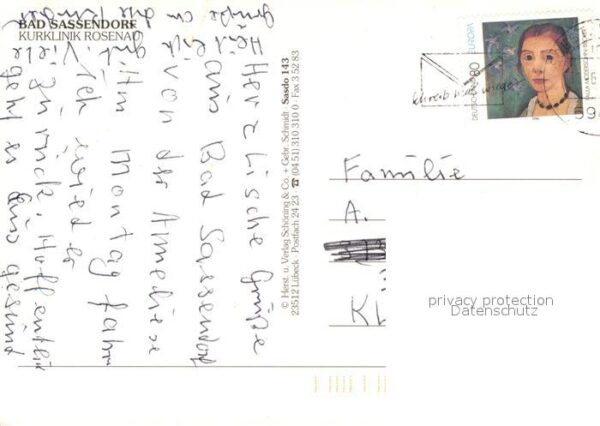 BAD SASSENDORF
KURKLINIK ROSENAU
Herzlische Grüße
aus Bad Sassendorf
von der Anneliese
Am Montag fahr
ich wieder
zurück. Hoffentlich
geht es Euch gesund
gut. Viele
Grüße an die Kinder
© Herst. u. Verlag Schöning & Co. + Gebr. Schmidt Sasdo 143
23512 Lübeck · Postfach 24 23 · ☎ (04 51) 310 310 0 · Fax 3 52 83
DEUTSCHLAND 80
EUROPA
PAULA MODERSOHN-BECKER
schreib mal wieder
59
Familie
A.
K
privacy protection
Datenschutz